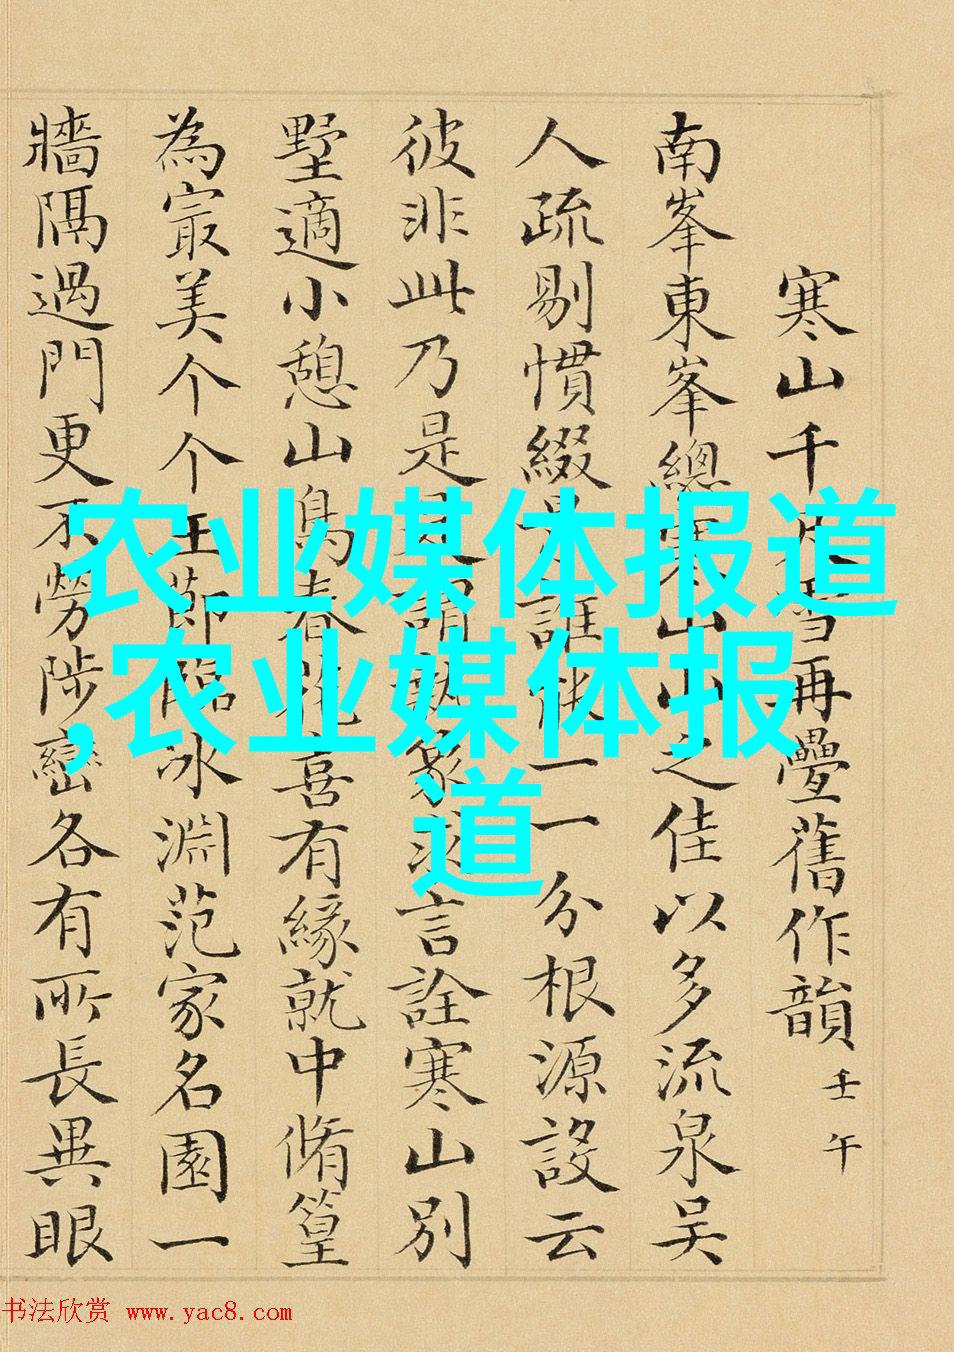 寒山千尺雪再疊舊作韻 壬午
南峯東峯總寒山山之佳以多流泉吴
人疏剔慣綴誰使一一分根源設云
彼非此乃是謂執象求言詮寒山別
墅適小憩山鳥春花喜有緣就中脩篁
為最美个个玉莭臨冰淵范家名園一
牆隔過門更不勞陟巒各有所長異眼
农业媒体报道
,农业媒体报
道
书法欣赏 www.yac8.com